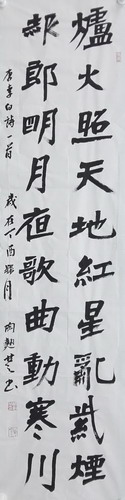 爐火照天地紅星亂紫煙
赧郎明月夜歌曲動寒川
唐李白詩一首
歲在丁酉